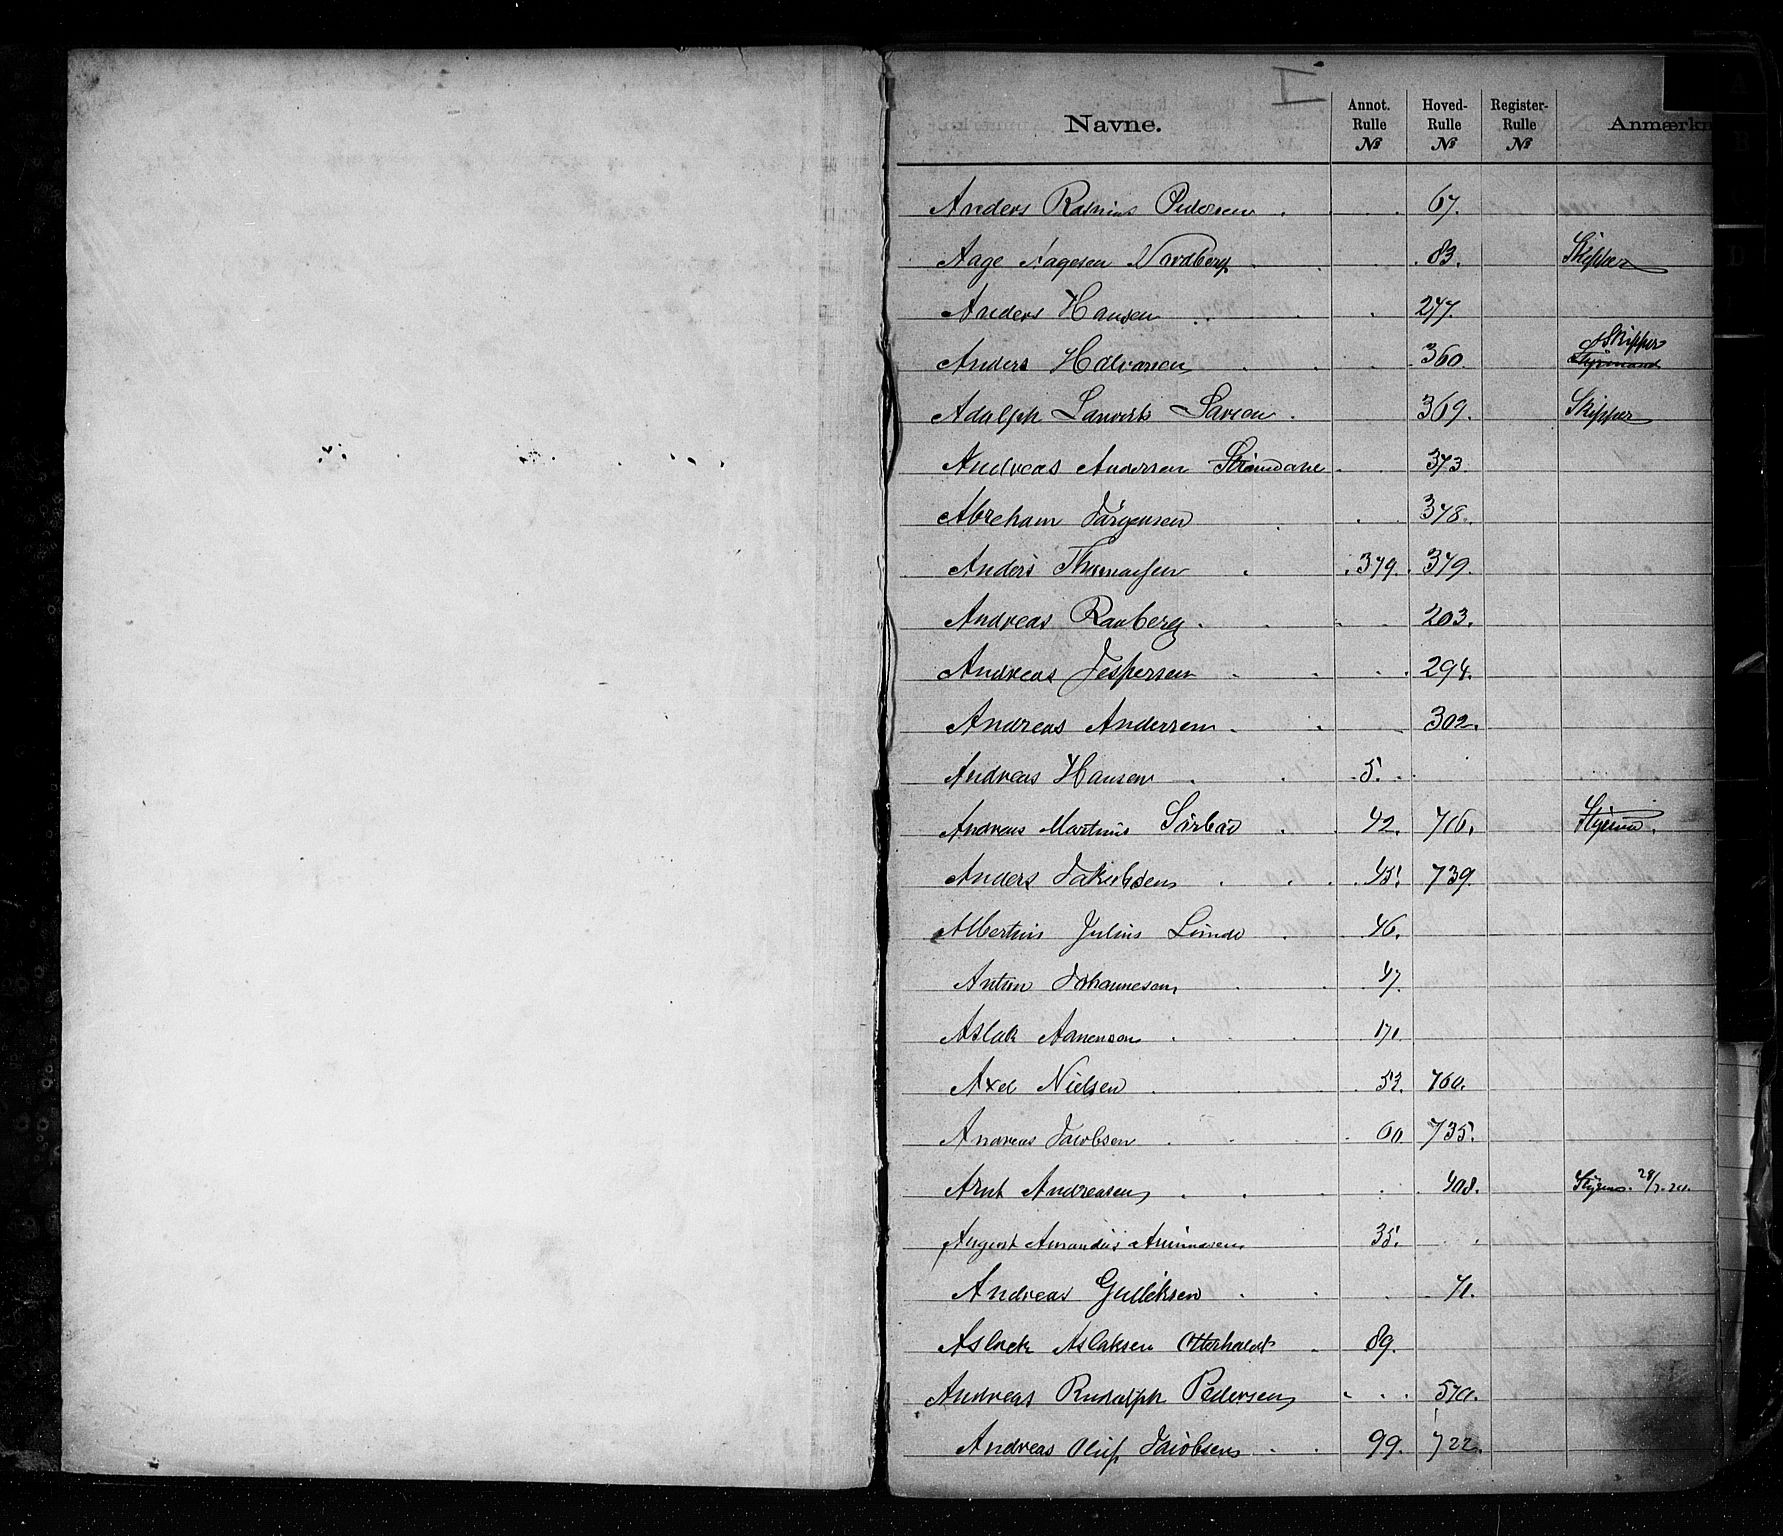 I
Navne. Annot. Rulle № Hoved- Rulle № Register- Rulle № Anmærkn
Anders Rasmus Pedersen . 67.
Aage Aagesen Nordberg . 83. Skipper
Anders Hansen 247.
Anders Halvorsen 360. Skipper Styrmand
Adolph Lauritz Larsen . 369. Skipper
Andreas Andersen 373
Abraham Jørgensen 348.
Anders Thomassen . 379. 379.
Andreas Rauberg . 203.
Andreas Jespersen 294.
Andreas Andersen . 302.
Andreas Hansen 5.
Andreas Martinius Sørbø 42. 716. Styrm.
Anders Jakobsen 45. 739.
Albertus Julius Lunde 46.
Anton Johannesen 47.
Aslak Aanensen 171.
Axel Nielsen 52. 760.
Andreas Jacobsen 60. 735.
Arnt Andreasen 408. Styrm.
August Amandus 35.
Andreas Gulliksen 71.
Aslack Aslaksen Otterholdt 89.
Andreas Rudolph Pedersen 570.
Andreas Oluf Jacobsen 99. 722.